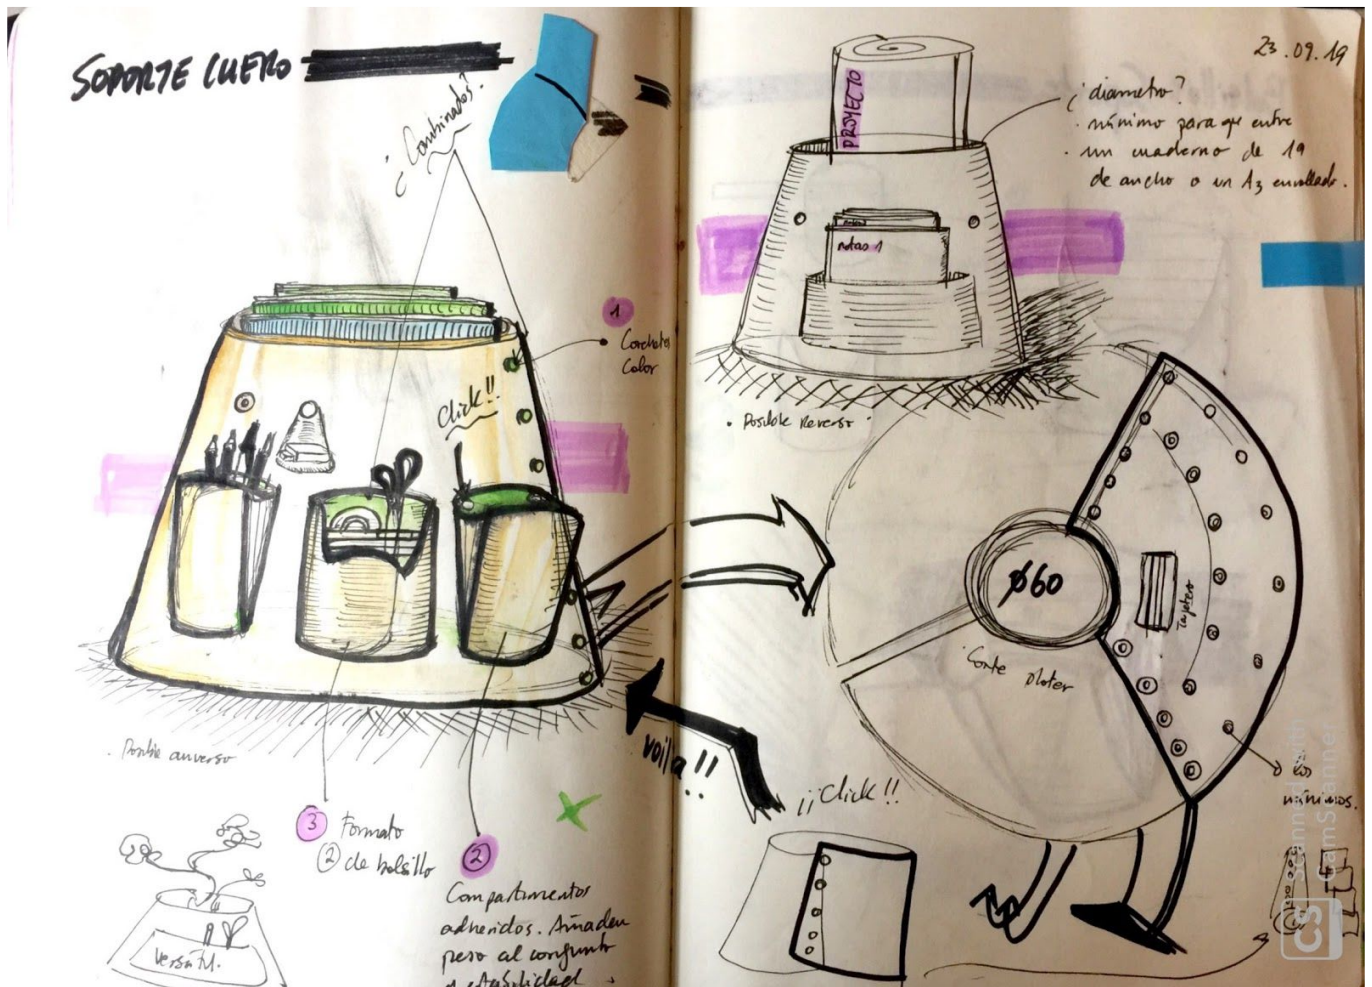 SOPORTE CUERO
¿Combinados?
1
Corchetes
Color
Click!!
. Posible anverso
3
Formato
2 de bolsillo
2
Compartimentos
adheridos. Añaden
peso al conjunto
y estabilidad
versátil.
voilá!!
23.09.19
PROYECTO
¿diametro?
. mínimo para que entre
. un cuaderno de 19
de ancho o un A3 enrollado.
notas 1
. Posible Reverso.
ø60
Tarjetero
Corte ploter
los
mínimos.
¡¡Click!!
Scanned with
CamScanner
CS